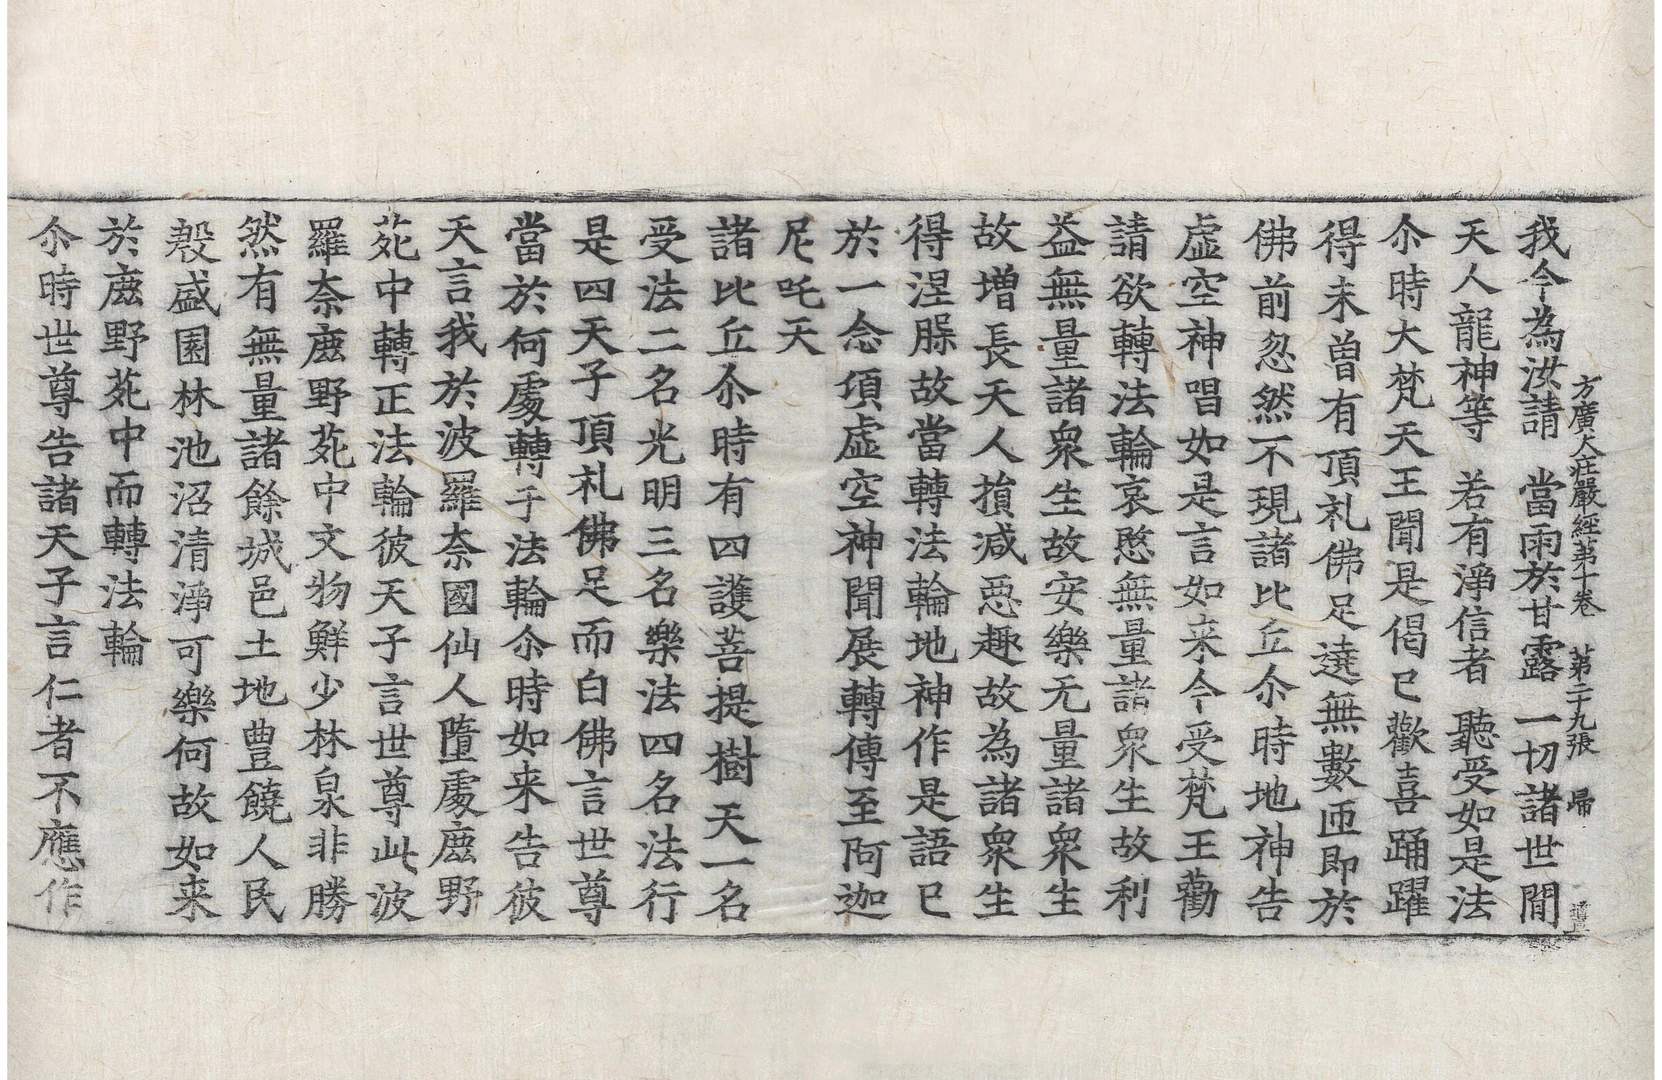 方廣大莊嚴經第十卷 第二十九張 帰
我今為汝請 當雨於甘露 一切諸世間
天人龍神等 若有淨信者 聽受如是法
尒時大梵天王聞是偈已歡喜踊躍
得未曾有頂礼佛足遶無數匝即於
佛前忽然不現諸比丘尒時地神告
虛空神唱如是言如来今受梵王勸
請欲轉法輪哀愍無量諸衆生故利
益無量諸衆生故安樂无量諸衆生
故增長天人損减惡趣故為諸衆生
得涅槃故當轉法輪地神作是語已
於一念頃虛空神聞展轉傳至阿迦
尼吒天
諸比丘尒時有四護菩提樹天一名
受法二名光明三名樂法四名法行
是四天子頂礼佛足而白佛言世尊
當於何處轉于法輪尒時如来告彼
天言我於波羅奈國仙人墮處鹿野
苑中轉正法輪彼天子言世尊此波
羅奈鹿野苑中文物鮮少林泉非勝
然有無量諸餘城邑土地豊饒人民
殷盛園林池沼清淨可樂何故如来
於鹿野苑中而轉法輪
尒時世尊告諸天子言仁者不應作